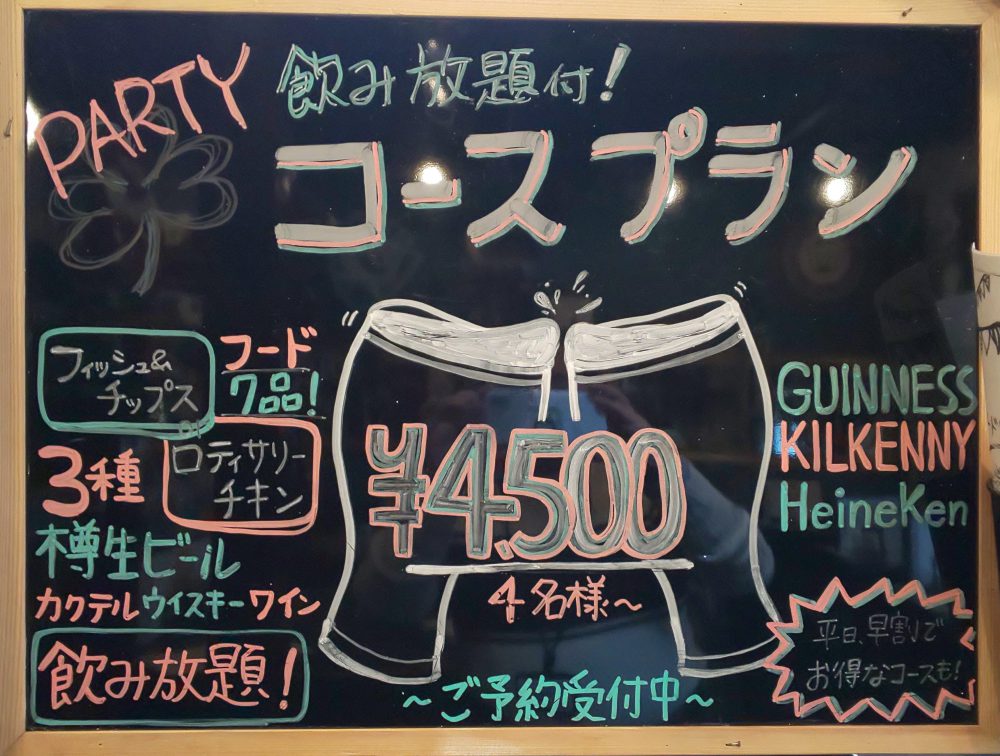 PARTY
飲み放題付!
コースプラン
フィッシュ&
チップス
フード
7品!
or
ロティサリー
チキン
3種
樽生ビール
カクテル ウイスキー ワイン
飲み放題!
¥4,500
4名様~
~ご予約受付中~
GUINNESS
KILKENNY
HeineKen
平日、早割で
お得なコースも!